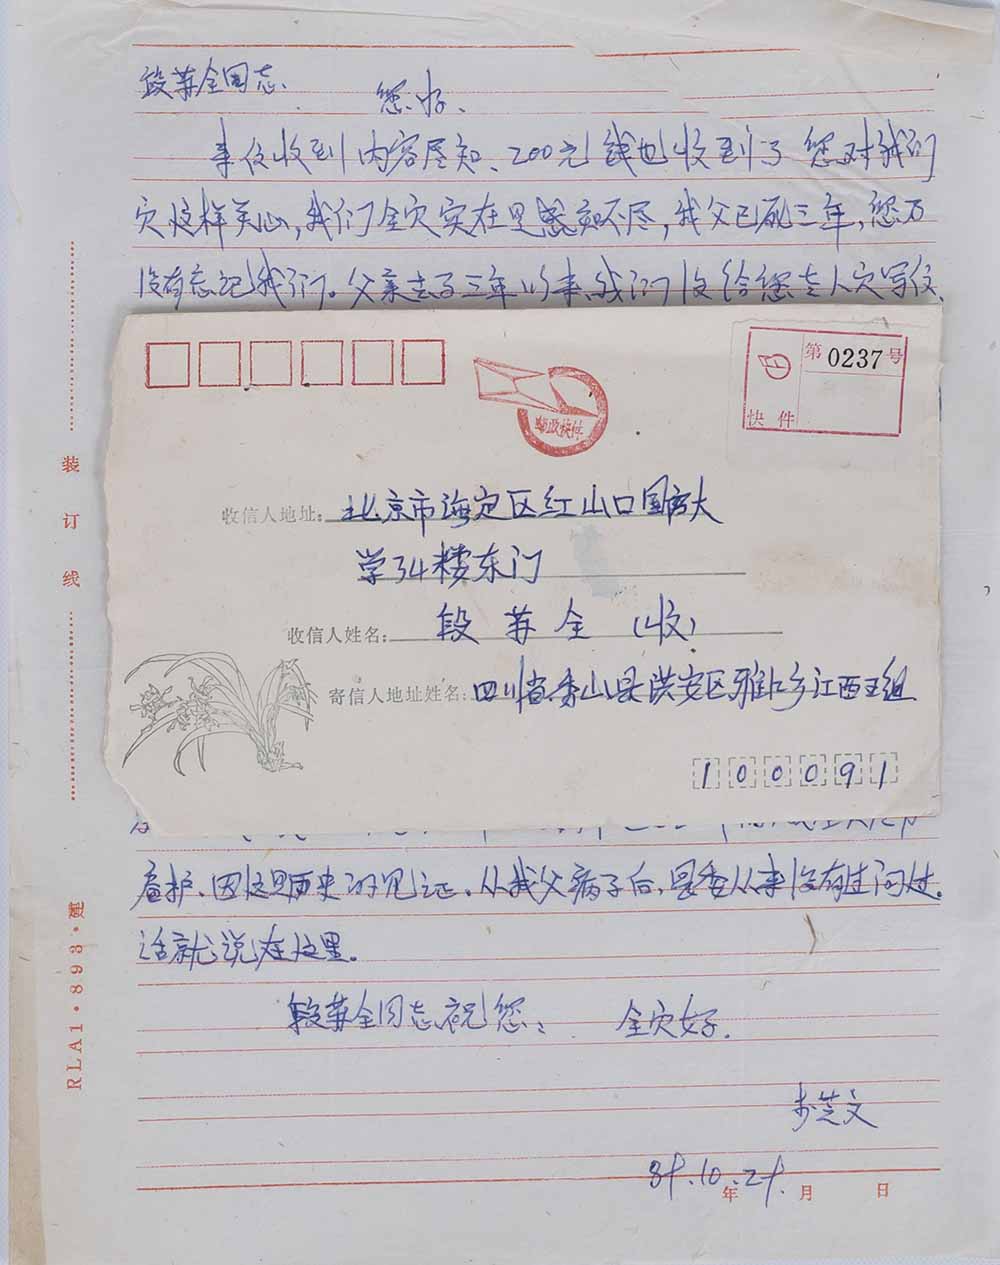 段苏全同志、
您好、
来信收到内容尽知、200元钱也收到了您对我们
灾这样关心,我们全灾实在是感知不尽,我父已死三年,您万
没有忘记我们。父亲去了三年以来,我们没给您老人灾写信、
第0237号
快件
邮政快件
收信人地址:北京市海定区红山口国防大
学34楼东门
收信人姓名:段苏全(收)
寄信人地址姓名:四川省秀山县洪安区雅江乡江西王组
100091
装
订
线
看护、因这是历史的见证、从我父病了后,县委从来没有过问过.
话就说在这里。
段苏全同志祝您: 全灾好.
RLA1·893·
年 月 日